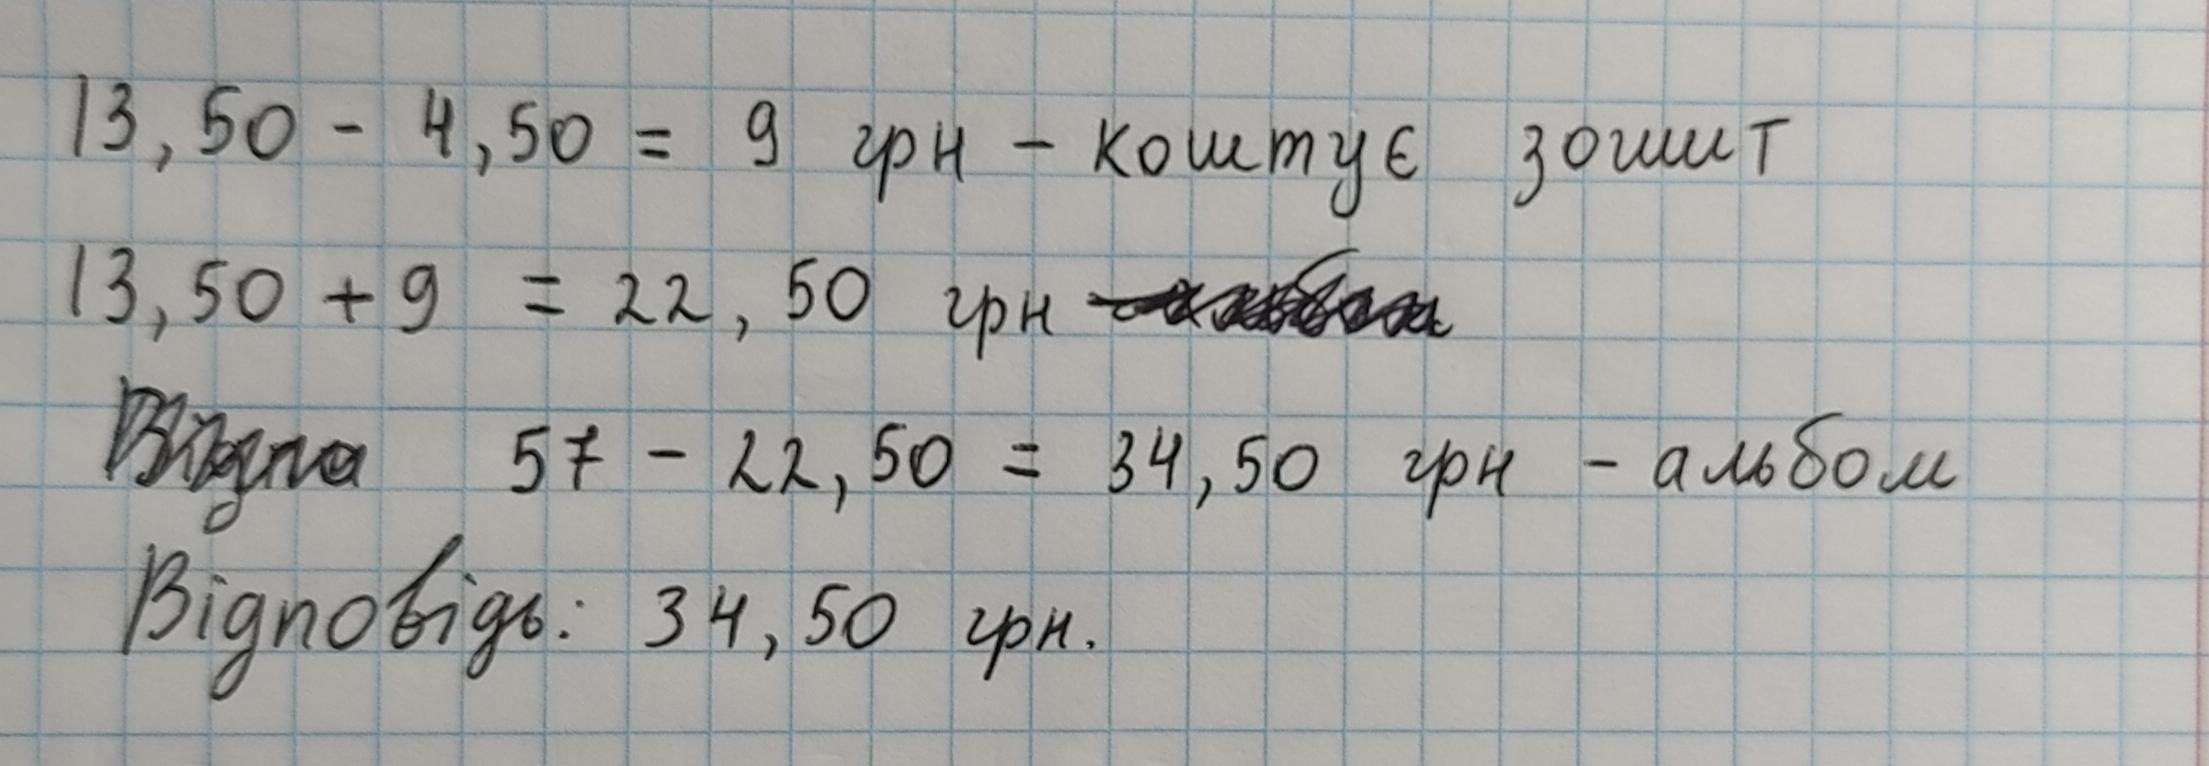 13,50 - 4,50 = 9 грн - коштує зошит
13,50 + 9 = 22,50 грн
57 - 22,50 = 34,50 грн - альбом
Відповідь: 34,50 грн.